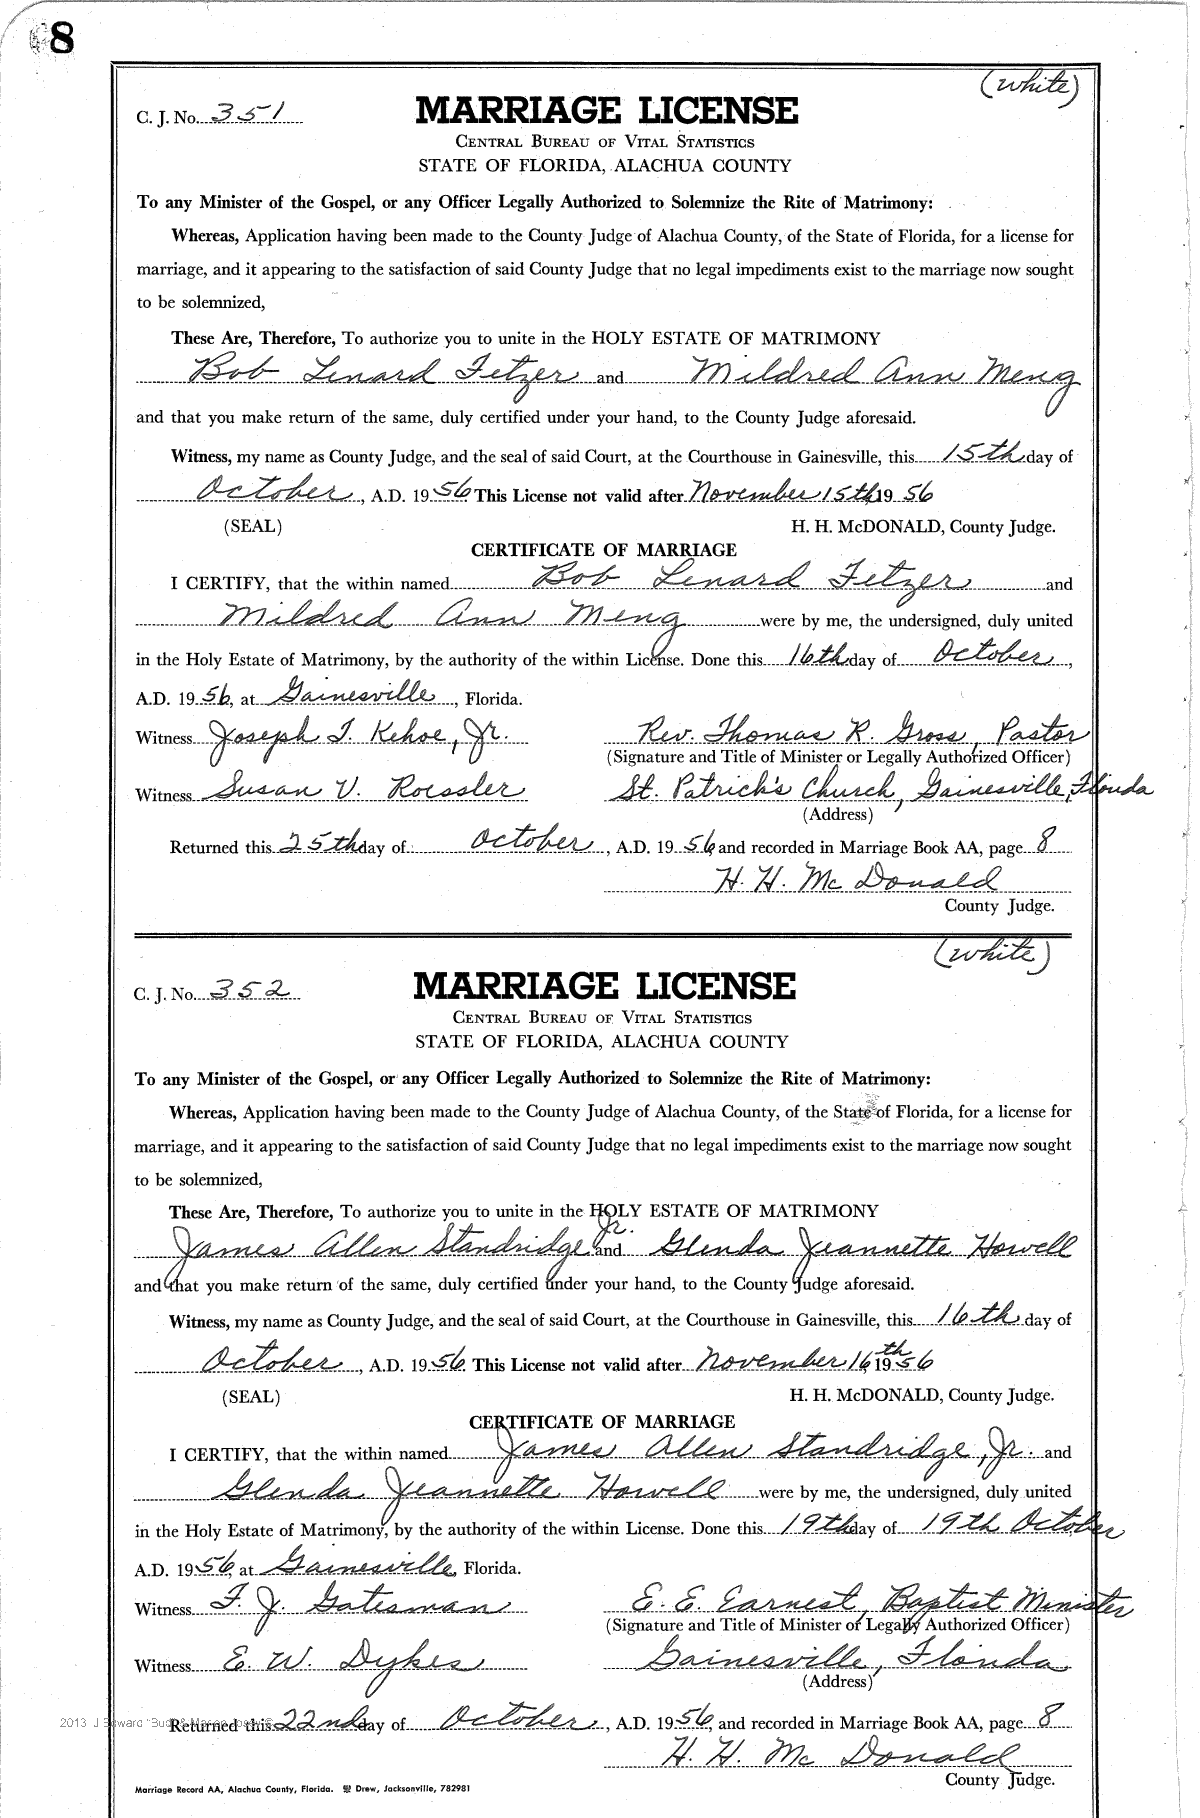 8
(white)
C. J. No. 351
MARRIAGE LICENSE
CENTRAL BUREAU OF VITAL STATISTICS
STATE OF FLORIDA, ALACHUA COUNTY
To any Minister of the Gospel, or any Officer Legally Authorized to Solemnize the Rite of Matrimony:
Whereas, Application having been made to the County Judge of Alachua County, of the State of Florida, for a license for
marriage, and it appearing to the satisfaction of said County Judge that no legal impediments exist to the marriage now sought
to be solemnized,
These Are, Therefore, To authorize you to unite in the HOLY ESTATE OF MATRIMONY
Bob Lenard Fetzer and Mildred Ann Meng
and that you make return of the same, duly certified under your hand, to the County Judge aforesaid.
Witness, my name as County Judge, and the seal of said Court, at the Courthouse in Gainesville, this 15th day of
October, A.D. 1956 This License not valid after November 15th 1956
(SEAL) H. H. McDONALD, County Judge.
CERTIFICATE OF MARRIAGE
I CERTIFY, that the within named Bob Lenard Fetzer and
Mildred Ann Meng were by me, the undersigned, duly united
in the Holy Estate of Matrimony, by the authority of the within License. Done this 16th day of October,
A.D. 1956, at Gainesville, Florida.
Witness Joseph T. Kehoe, Jr. Rev. Thomas R. Gross, Pastor
(Signature and Title of Minister or Legally Authorized Officer)
Witness Susan V. Roessler St. Patrick's Church, Gainesville, Florida
(Address)
Returned this 25th day of October, A.D. 1956, and recorded in Marriage Book AA, page 8
H. H. Mc Donald
County Judge.
(white)
C. J. No. 352
MARRIAGE LICENSE
CENTRAL BUREAU OF VITAL STATISTICS
STATE OF FLORIDA, ALACHUA COUNTY
To any Minister of the Gospel, or any Officer Legally Authorized to Solemnize the Rite of Matrimony:
Whereas, Application having been made to the County Judge of Alachua County, of the State of Florida, for a license for
marriage, and it appearing to the satisfaction of said County Judge that no legal impediments exist to the marriage now sought
to be solemnized,
These Are, Therefore, To authorize you to unite in the HOLY ESTATE OF MATRIMONY
James Allen Standridge Jr. and Glenda Jeannette Howell
and that you make return of the same, duly certified under your hand, to the County Judge aforesaid.
Witness, my name as County Judge, and the seal of said Court, at the Courthouse in Gainesville, this 16th day of
October, A.D. 1956. This License not valid after November 16th 1956
(SEAL) H. H. McDONALD, County Judge.
CERTIFICATE OF MARRIAGE
I CERTIFY, that the within named James Allen Standridge, Jr. and
Glenda Jeannette Howell were by me, the undersigned, duly united
in the Holy Estate of Matrimony, by the authority of the within License. Done this 19th day of 19th October
A.D. 1956, at Gainesville, Florida.
Witness F. J. Gatesman E. E. Earnest, Baptist Minister
(Signature and Title of Minister or Legally Authorized Officer)
Witness E. W. Dykes Gainesville, Florida
(Address)
2013 J Edward "Bud"
Returned this 22nd day of October, A.D. 1956, and recorded in Marriage Book AA, page 8
H. H. Mc Donald
County Judge.
Marriage Record AA, Alachua County, Florida. Drew, Jacksonville, 782981